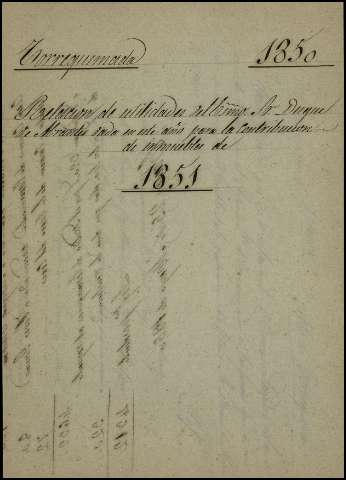 Torrequemada 1850
Relacion de utilidades del Excmo. Sr. Duque
de Abrantes dada en este año para la contribucion
de inmuebles de
1851